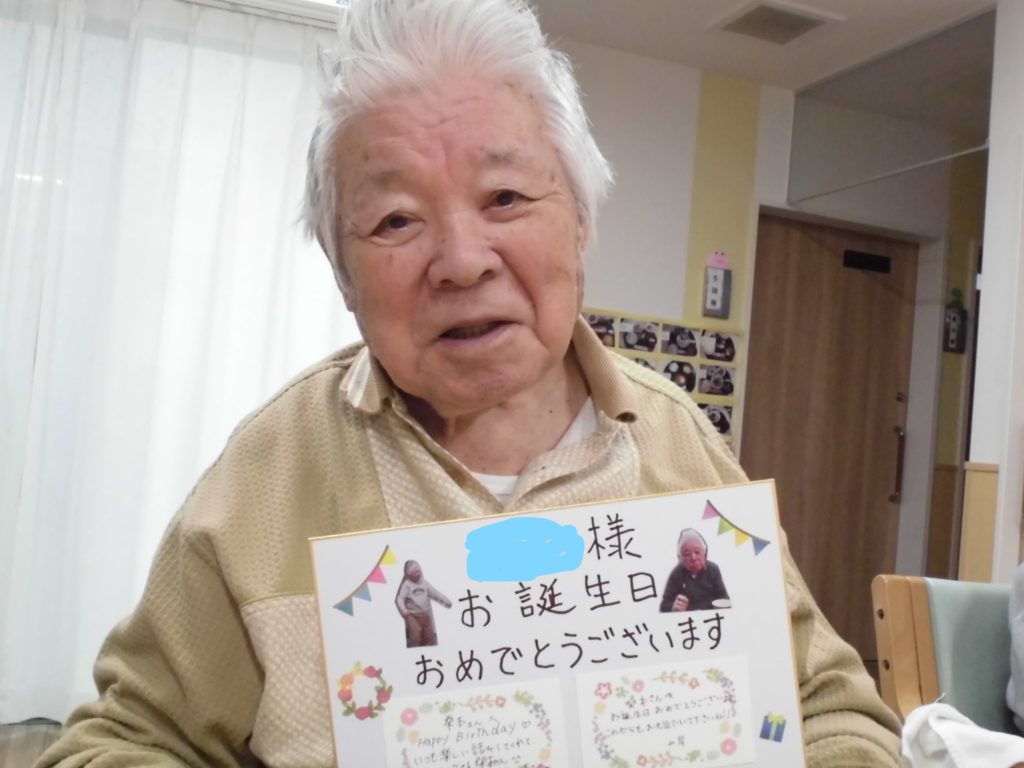 様
お誕生日
おめでとうございます
さんへ
Happy Birthday♡
いつも楽しい話をしてくれて
さんへ
お誕生日おめでとうございます
これからもお元気でいて下さいね!!